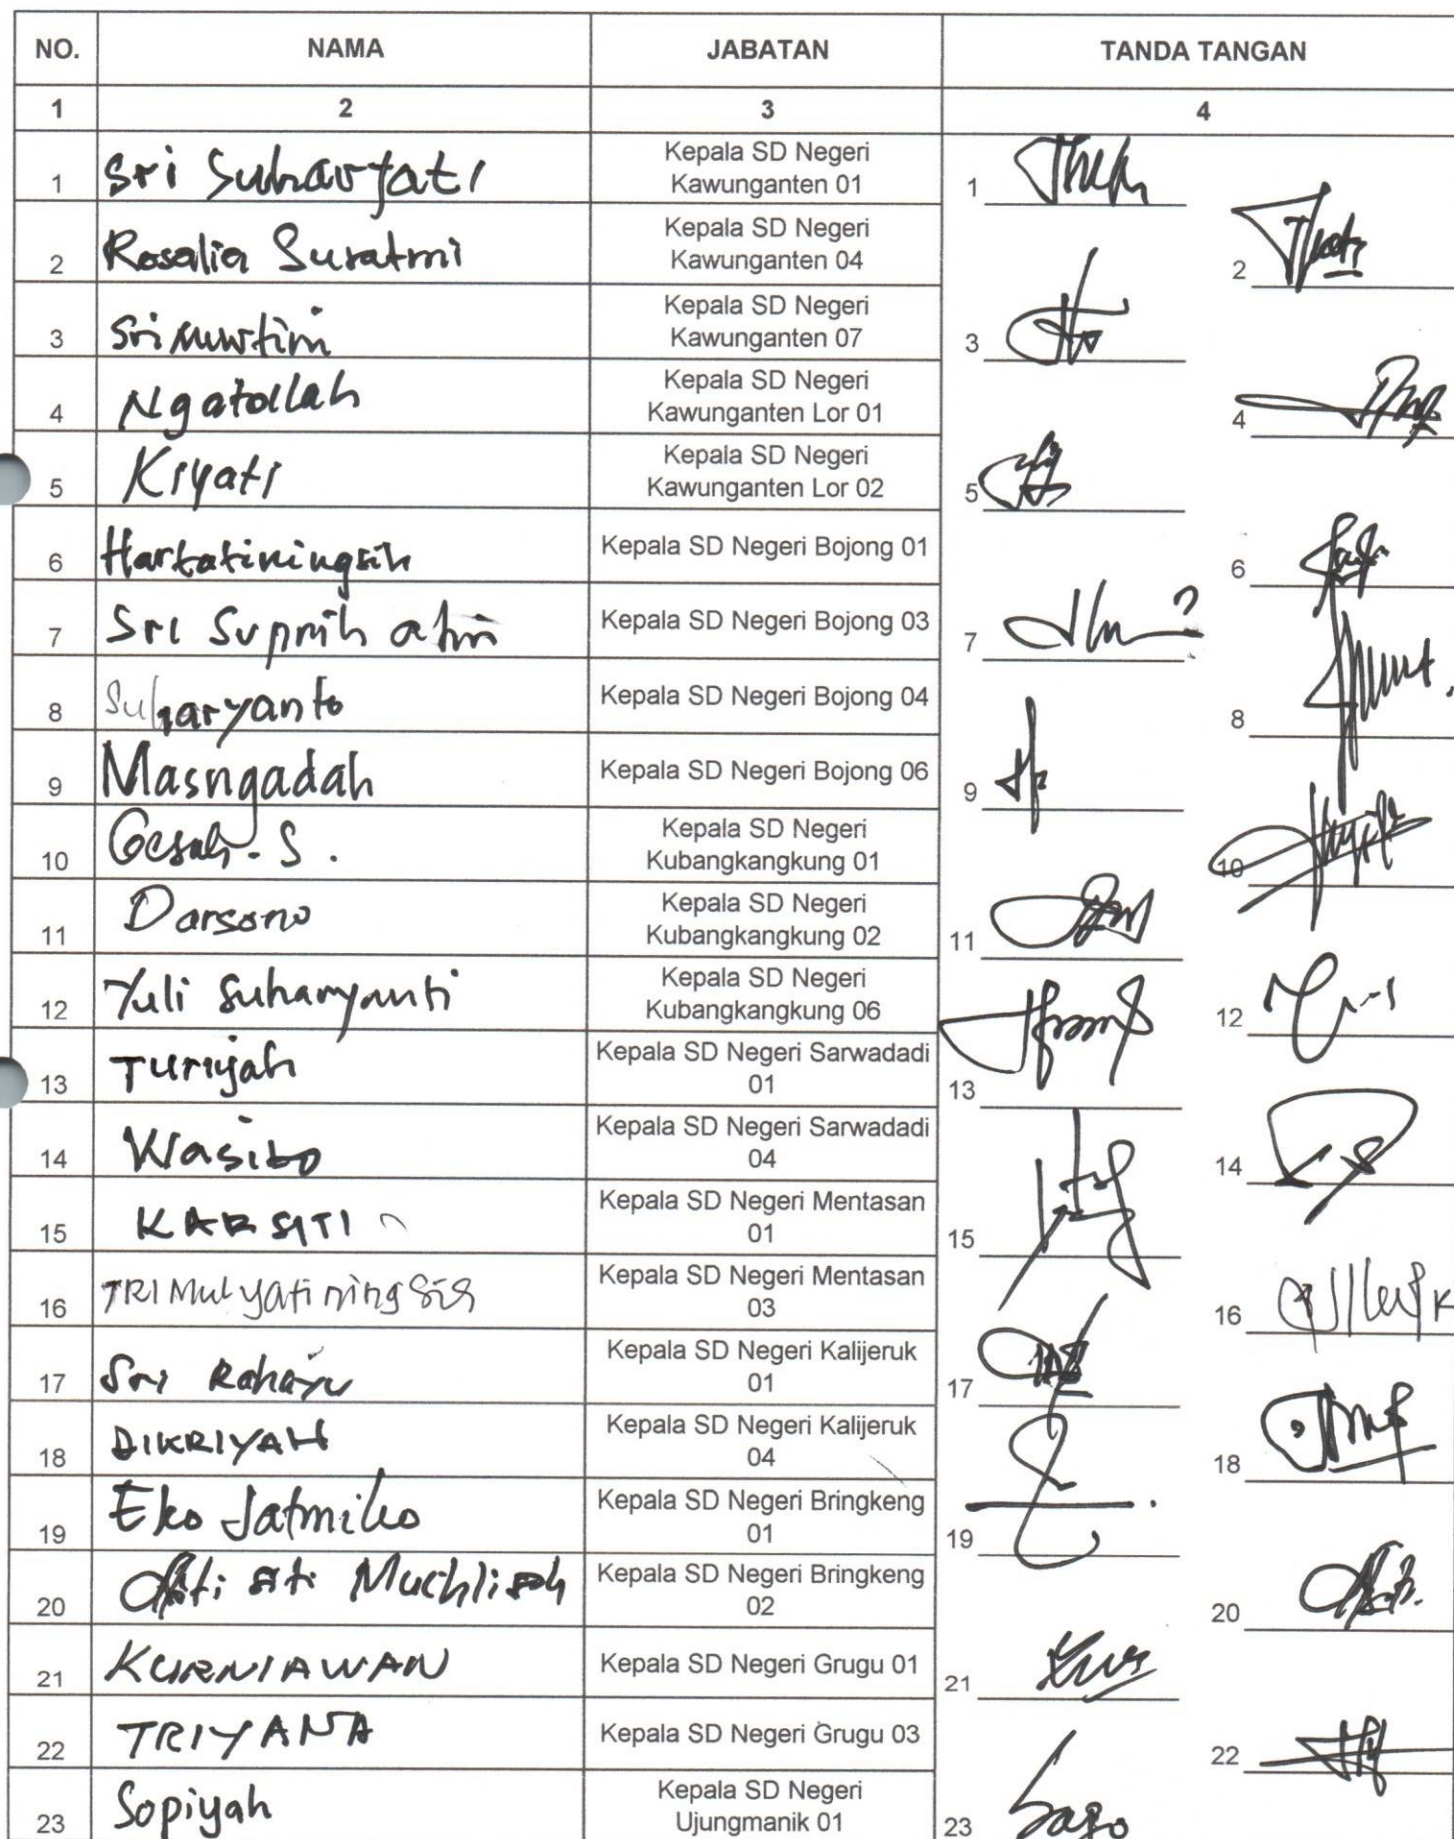 NO. NAMA JABATAN TANDA TANGAN
1 2 3 4
1 Sri Suharyati Kepala SD Negeri
Kawunganten 01 1
2 Rosalia Suratmi Kepala SD Negeri
Kawunganten 04 2
3 Sri Murtini Kepala SD Negeri
Kawunganten 07 3
4 Ngatollah Kepala SD Negeri
Kawunganten Lor 01 4
5 Kiyati Kepala SD Negeri
Kawunganten Lor 02 5
6 Hartatiningsih Kepala SD Negeri Bojong 01 6
7 Sri Kepala SD Negeri Bojong 03 7
8 Suharyanto Kepala SD Negeri Bojong 04 8
9 Masngadah Kepala SD Negeri Bojong 06 9
10 S. Kepala SD Negeri
Kubangkangkung 01 10
11 Darsono Kepala SD Negeri
Kubangkangkung 02 11
12 Yuli Suharyanti Kepala SD Negeri
Kubangkangkung 06 12
13 Turiyah Kepala SD Negeri Sarwadadi
01 13
14 Wasito Kepala SD Negeri Sarwadadi
04 14
15 KARSITI Kepala SD Negeri Mentasan
01 15
16 TRI Mulyatiningsih Kepala SD Negeri Mentasan
03 16
17 Sri Rahayu Kepala SD Negeri Kalijeruk
01 17
18 DIKRIYAH Kepala SD Negeri Kalijeruk
04 18
19 Eko Jatmiko Kepala SD Negeri Bringkeng
01 19
20 siti Muchlisoh Kepala SD Negeri Bringkeng
02 20
21 KURNIAWAN Kepala SD Negeri Grugu 01 21
22 TRIYANA Kepala SD Negeri Grugu 03 22
23 Sopiyah Kepala SD Negeri
Ujungmanik 01 23